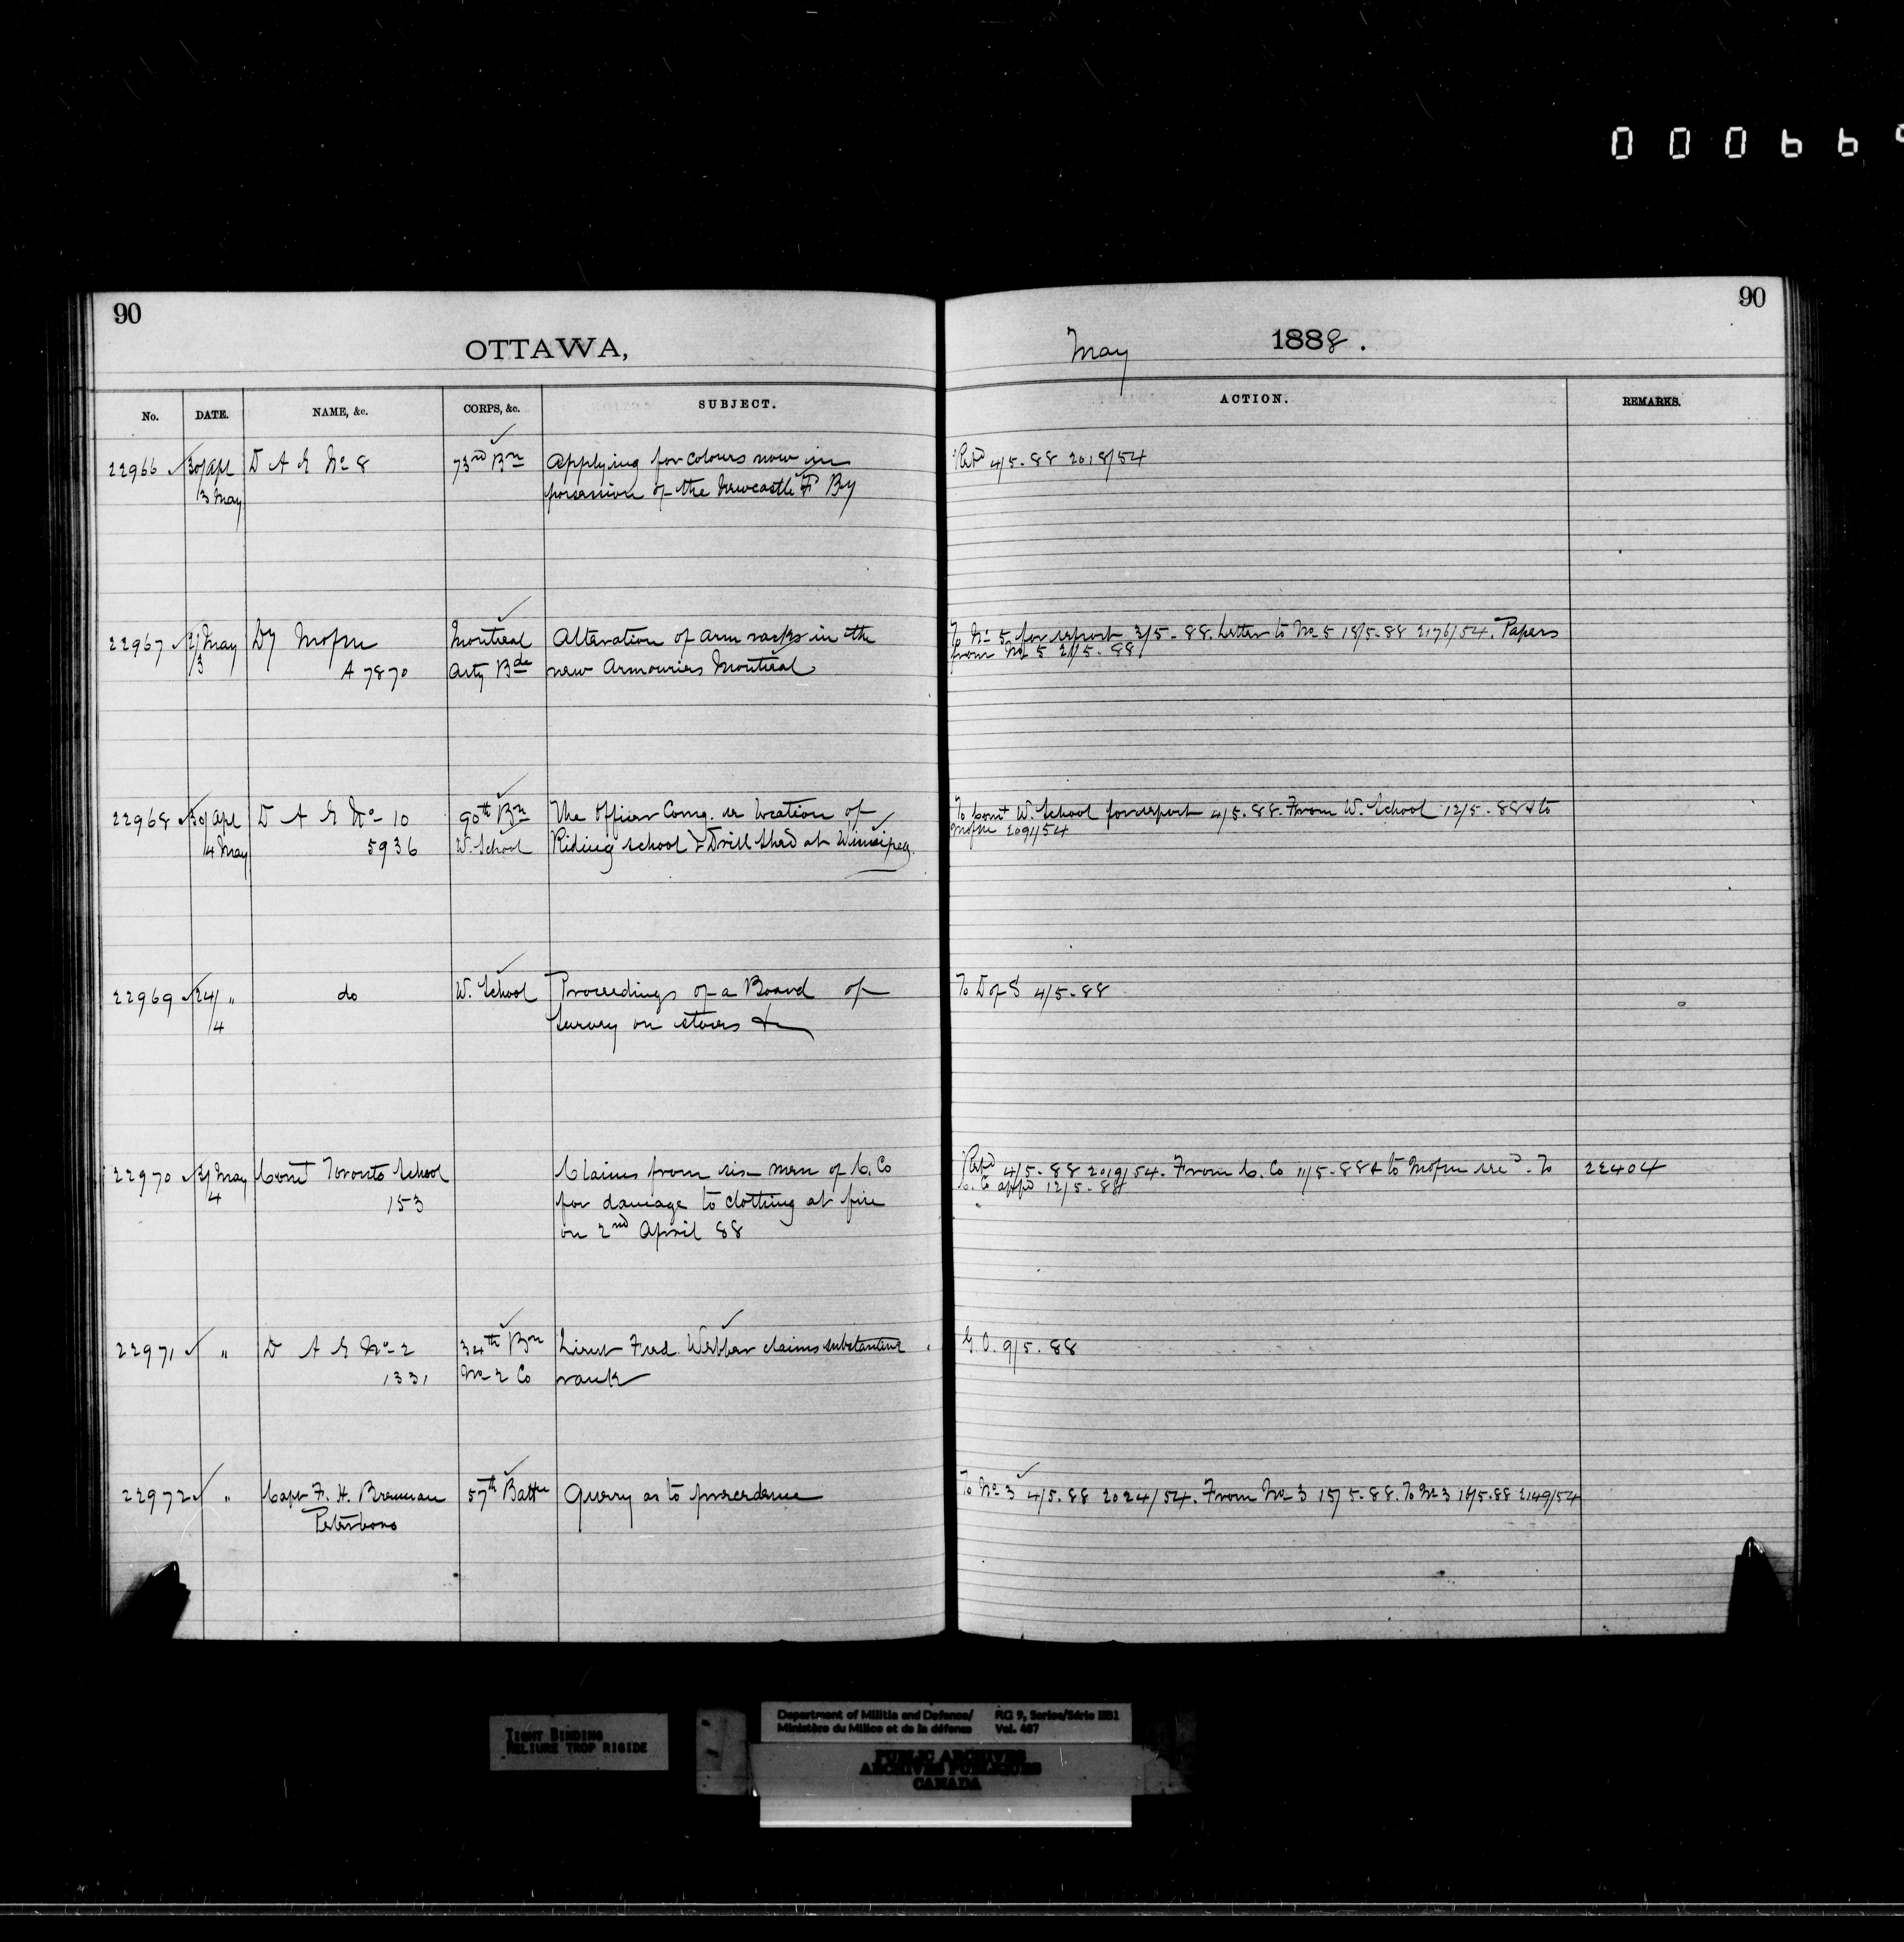 000669
90
OTTAWA,
May 1888.
90
No. DATE. NAME, &c. CORPS, &c. SUBJECT. ACTION. REMARKS.
22966 30/Apl D A G No 8 73rd Bn Applying for colours now in Retd 4/5-88 2018/54
/3 May possession of the Newcastle F By
22967 2/May Dy Mofm Montreal Alteration of arm racks in the To No 5 for report 3/5-88. Letter to No 5 18/5-88 2176/54. Papers
/3 A 7870 Arty Bde new Armouries Montreal from No 5 21/5-88
22968 30/Apl D A G No 10 90th Bn The Officer Comg. re location of To Comt W. School for report 4/5.88. From W. School 12/5-88 & to
/4 May 5936 W. School Riding school & Drill Shed at Winnipeg. Mofm 2091/54
22969 24/ " do W. School Proceedings of a Board of To D of S 4/5-88
/4 Survey on stores &c
22970 3/May Comt Toronto School Claims from six men of C. Co Retd 4/5-88 2019/54. From C. Co 11/5-88 & to Mofm recd. To 22404
4 153 for damage to clothing at fire C. Co appd 12/5-88
on 2nd April 88
22971 " D A G No 2 34th Bn Lieut Fred. Webber claims substantive G.O. 9/5.88
1331 No 2 Co rank
22972 " Capt F. H. Brennan 57th Battn Query as to precedence To No 3 4/5.88 2024/54. From No 3 15/5-88. To No 3 16/5.88 2149/54
Peterboro
TIGHT BINDING
RELIURE TROP RIGIDE
Department of Militia and Defence/ RG 9, Series/Série IIB1
Ministère du Milice et de la défense Vol. 487
PUBLIC ARCHIVES
ARCHIVES PUBLIQUES
CANADA